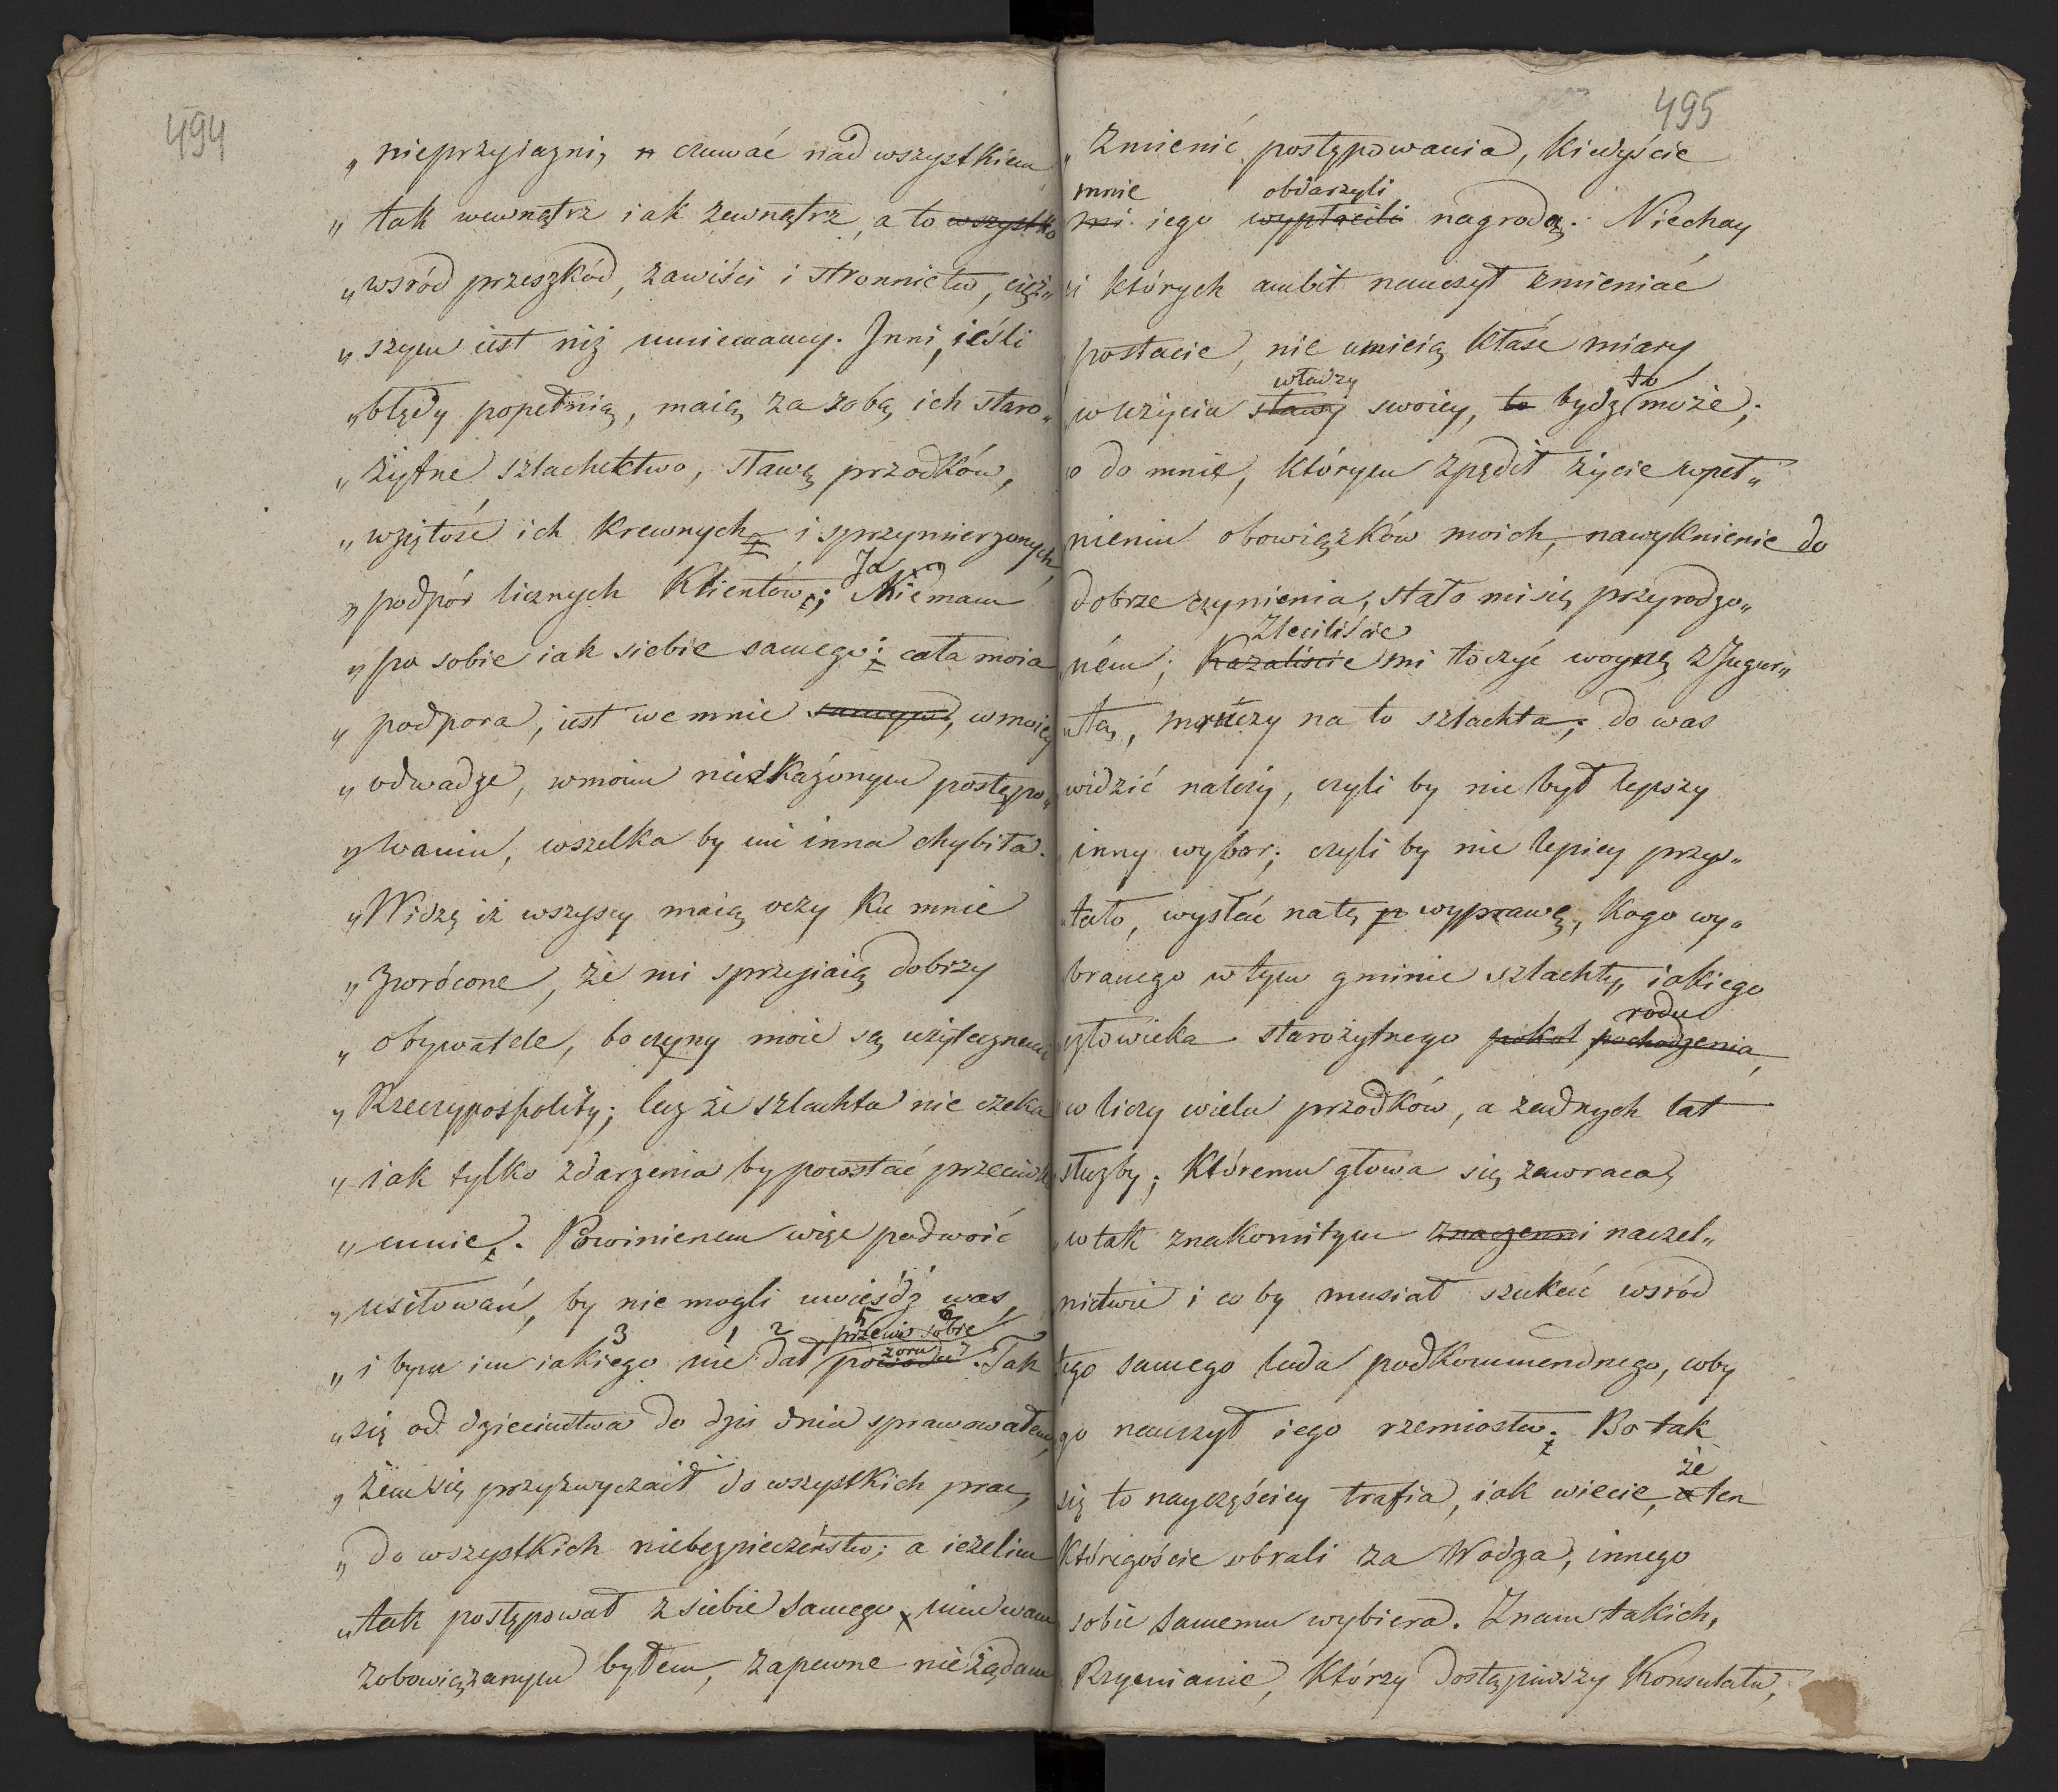 494
„ nieprzyiazni, n czuwać nad wszystkiem
„ tak wewnątrz iak zewnątrz, a to wszystko
„ wsród przeszkód, zawiści i stronnictw, cięż„
„ szym iest niż mniemamy. Inni, ieśli
„ błędy popełnią, maią za sobą ich staro„
„ żytne szlachetctwo, sławę przodków,
„ wziętość ich krewnych i sprzymierzonych,
„ podpór licznych Klientów; Ja Niemam
„ po sobie iak siebie samego: cała moia
„ podpora, iest we mnie samym, w moiey
„ odwadze, w moim nieskażonym postępo„
„ waniu, wszelka by mi inna chybiła.
„ Widzę iż wszyscy maią oczy ku mnie
„ zwrócone, że mi sprzyiaią dobrzy
„ obywatele, bo czyny moie są użytecznemi
„ Rzeczypospolitéy; lecz że szlachta nie czeka
„ iak tylko zdarzenia by powstać przeciwko
„ mnie. Powinienem więc podwoić
„ usiłowań, by nie mogli uwieśdź was,
3 1 2 5 przeciw sobie 6
„ i bym im iakiego nie dał pozoru powodu. Tak
„ się od dzieciństwa do dziś dnia sprawowałem,
„ żem się przyzwyczaił do wszystkich prac,
„ do wszystkich niebezpieczeństw; a ieżelim
„ tak postępował z siebie samego, nim wam
zobowiązanym byłem, zapewne nie żądam
495
„ Zmienić postępowania, kiedyście
mnie obdarzyli
mi iego wypłacili nagrodą. Niechay
ci których ambit nauczył zmieniać
postacie, nie umieią kłaść miary
władzy to
w użyciu sławy swoiey, to bydź może;
co do mnie, którym zpędził życie w peł„
nieniu obowiązków moich, nawyknienie do
dobrze czynienia, stało mi się przyrodzo„
Zleciliście
ném; Kazaliście mi toczyć woynę z Jugur„
„tą, mruczy na to szlachta; do was
widzić należy, czyli by nie był lepszy
inny wybor; czyli by nie lepiey przys„
„tało, wysłać na tę p wyprawę, kogo wy„
branego w tym gminie szlachty, iakiego
rodu
człowieka starożytnego pokol pochodzenia,
w liczy wielu przodków, a żadnych lat
służby; któremu głowa się zawraca,
w tak znakomitym znaczenni naczel„
nictwie i co by musiał szukać wsród
tego samego luda podkommendnego, coby
go nauczył iego rzemiosłu. Bo tak
że
się to nayczęściey trafia, iak wiecie, a ten
któregoście obrali za Wodza, innego
sobie samemu wybiera. Znam takich,
Rzymianie, którzy dostąpiwszy Konsulatu,